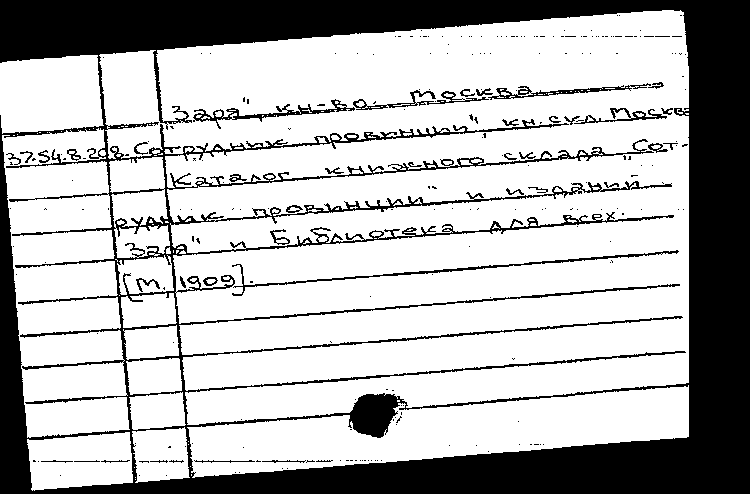 "Заря", кн-во. Москва
37.54.8.208. "Сотрудник провинции", кн. скл. Москва
Каталог книжного склада "Сот-
рудник провинции" и изданий
"Заря" и Библиотека для всех.
[М., 1909].